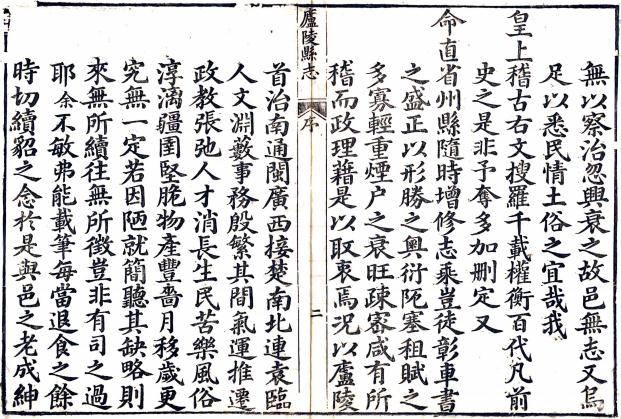 無以察治忽興衰之故邑無志又烏
足以悉民情土俗之宜哉我
皇上稽古右文搜羅千載權衡百代凡前
史之是非予奪多加删定又
命直省州縣隨時增修志乘豈徒彰車書
之盛正以形勝之輿衍阨塞租賦之
多寡輕重煙户之衰旺疎宻咸有所
稽而政理藉是以取衷焉况以廬陵
廬陵縣志
序
二
首治南通閩廣西接楚南北連袁臨
人文淵藪事務殷繁其間氣運推遷
政教張弛人才消長生民苦樂風俗
淳漓疆圉堅脆物產豐嗇月移歲更
究無一定若因陋就簡聽其缺略則
來無所續往無所徵豈非有司之過
耶余不敏弗能載筆每當退食之餘
時切續貂之念於是與邑之老成紳